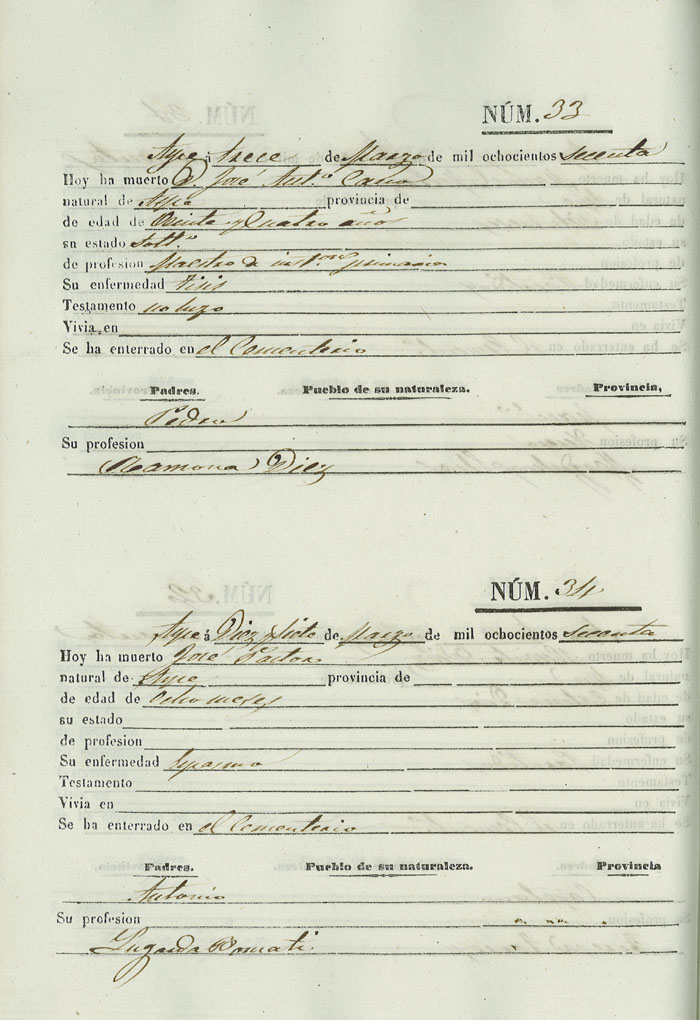 NÚM. 33
Aspe á trece de Marzo de mil ochocientos secenta
Hoy ha muerto D. José Ant.º Caño
natural de Aspe provincia de
de edad de treinta y cuatro año
su estado Solt.º
de profesion Maestro de inst.on primaria
Su enfermedad tisis
Testamento no hizo
Vivia en
Se ha enterrado en el Cementerio
Padres. Pueblo de su naturaleza. Provincia,
Pedro
Su profesion
Ramona Diez
NÚM. 34
Aspe á Diez y Siete de Marzo de mil ochocientos secenta
Hoy ha muerto José Pastor
natural de Aspe provincia de
de edad de ocho meses
su estado
de profesion
Su enfermedad espasmo
Testamento
Vivia en
Se ha enterrado en el Cementerio
Padres. Pueblo de su naturaleza. Provincia
Antonio
Su profesion
Lugarda